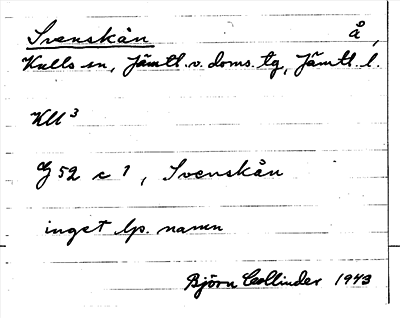 Svenskån å,
Kalls sn, Jämtl. v. doms. tg, Jämtl. l.
KU³
G 52 c 1, Svenskån
inget lp. namn
Björn Collinder 1943